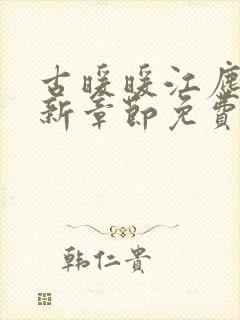 古暖暖江塵
新章節免費
韩仁貴